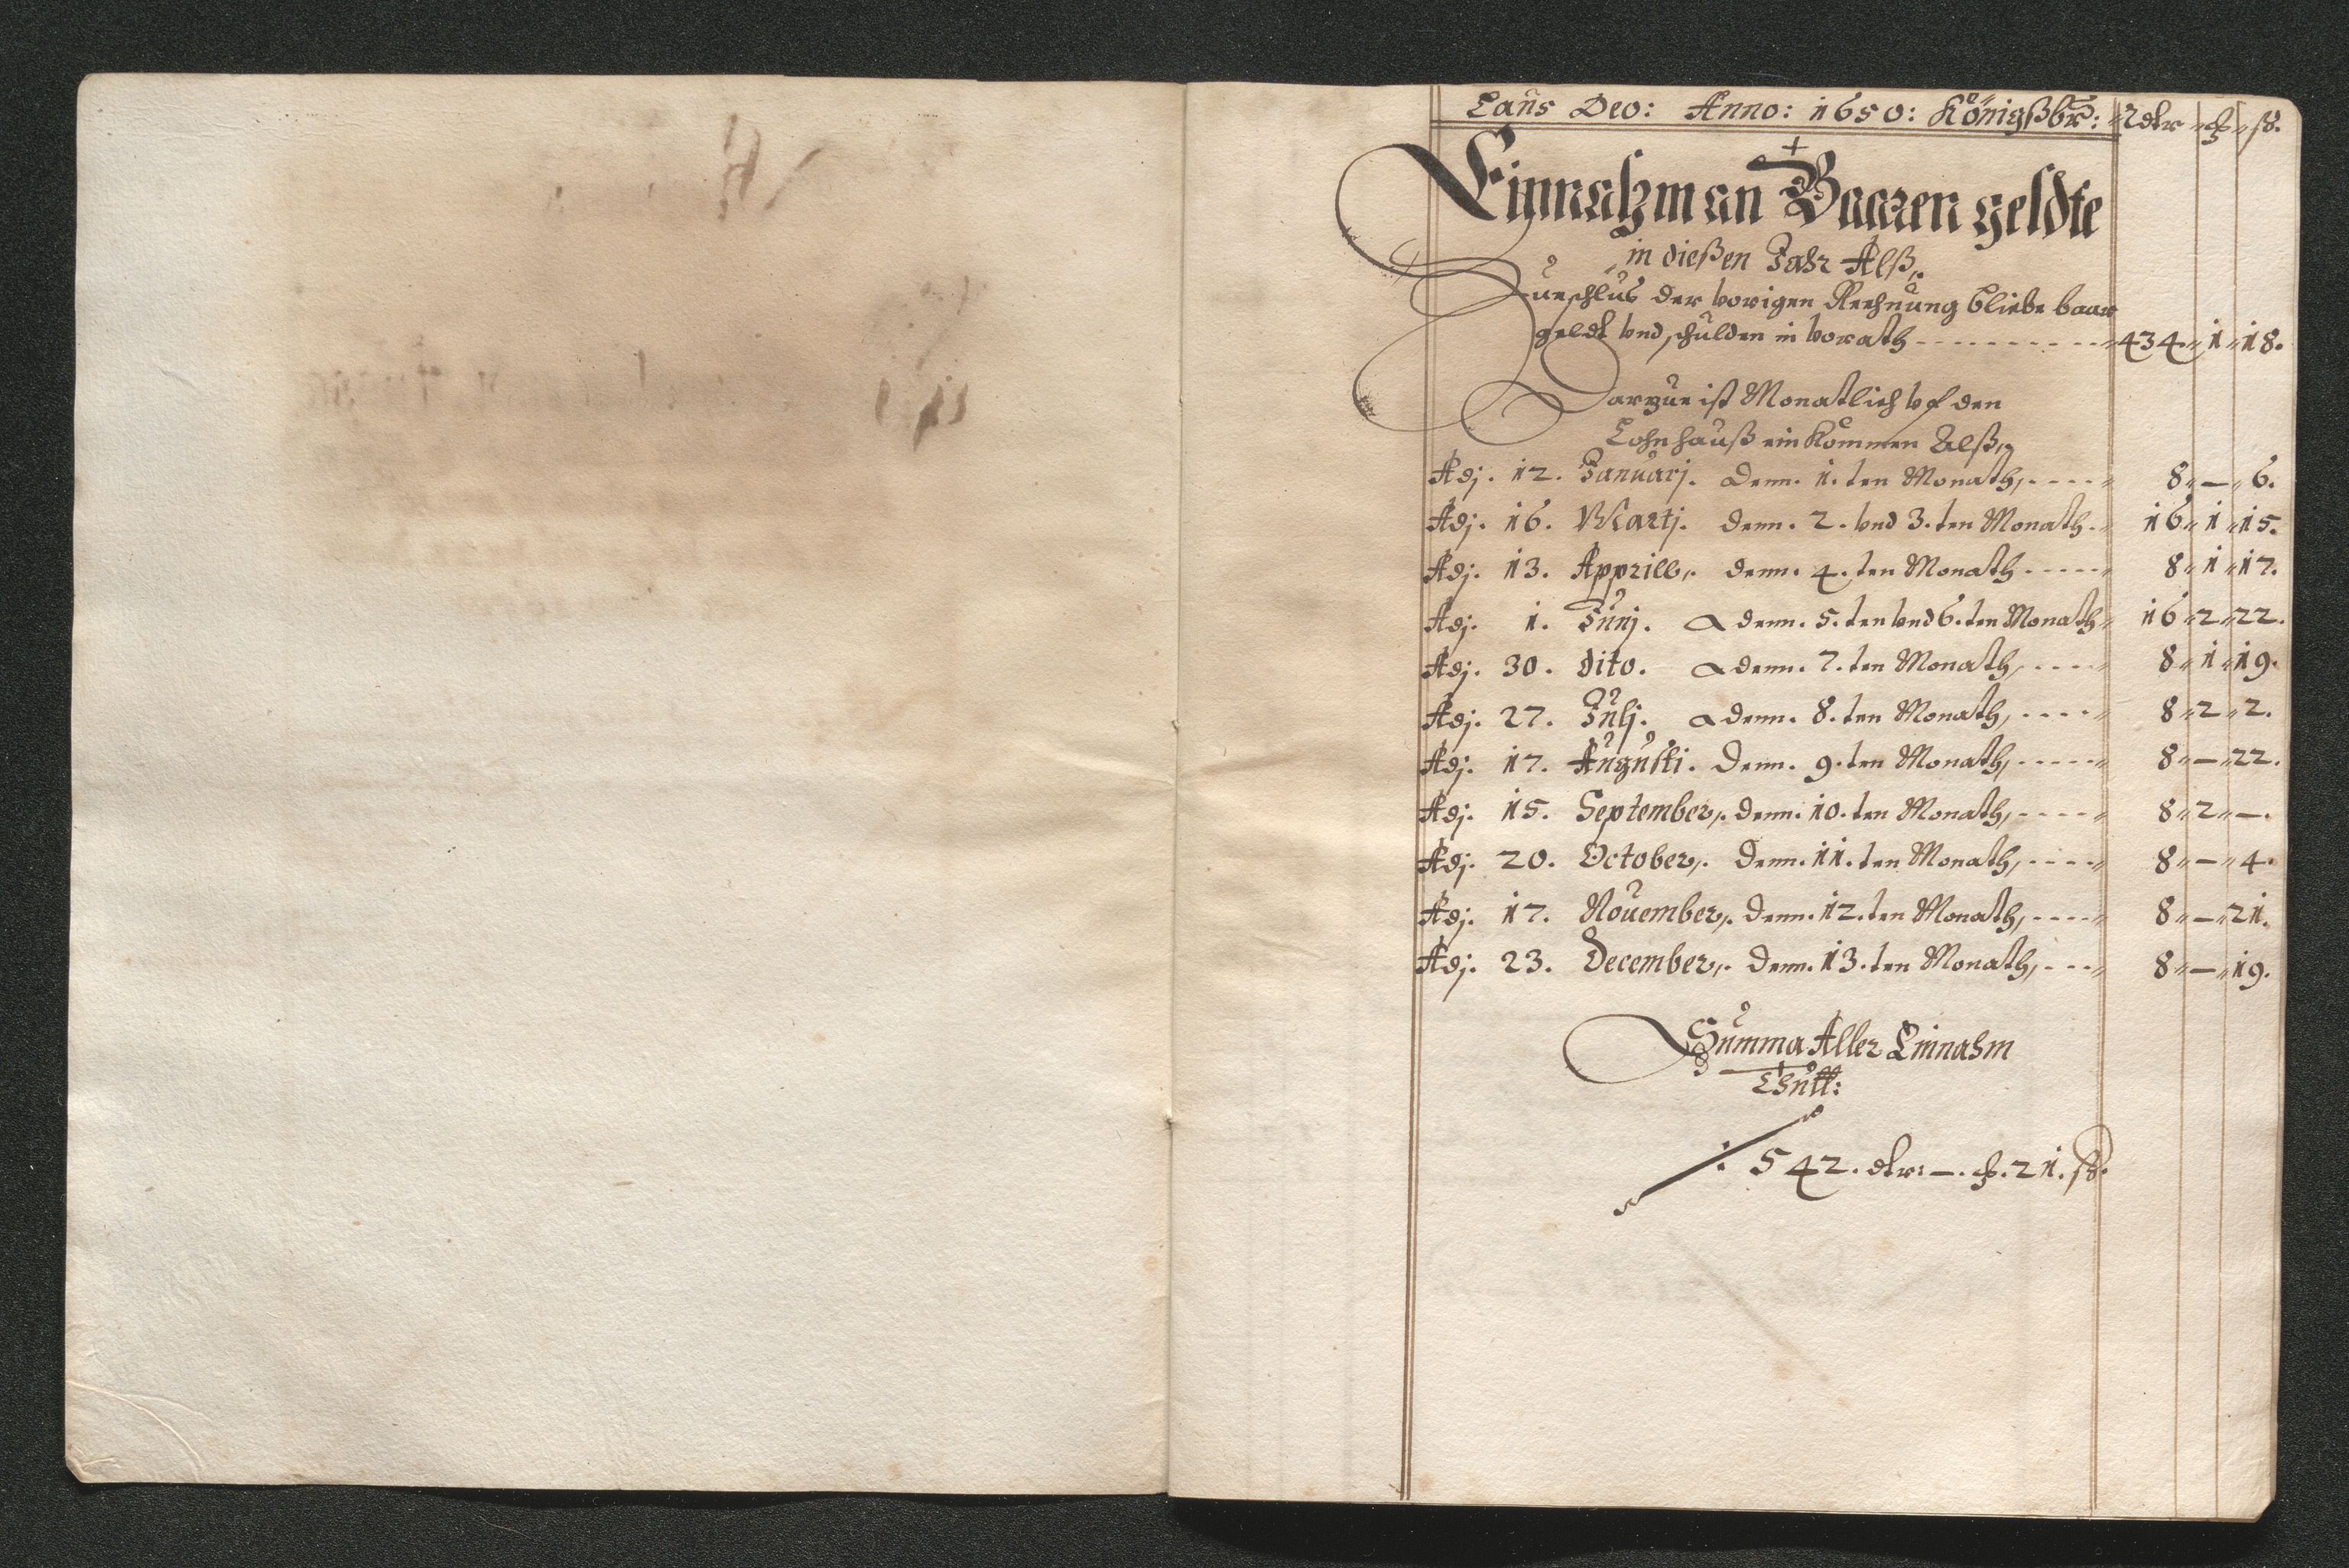 Laus Deo: Anno: 1650: Königßbr: Rdlr ß.
Einnahm an Baaren geldte
in dießen Jahr Alß,
Zueschlus der vorigen Rechnung bliebe baar
geldt vnd schulden in vorath 434 1 18.
Darzue ist Monatlich vf den
Lohnhauß ein kommen Alß,
Adj. 12. Januarj. Denn. 1. ten Monath, 8 — 6.
Adj. 16. Martj. denn. 2. vnd 3. ten Monath. 16 1 15.
Adj. 13. Apprill, denn. 4. ten Monath 8 1 17.
Adj. 1. Junj. denn. 5. ten vnd 6. ten Monath 16 2 22.
Adj. 30. dito. denn. 7. ten Monath, 8 1 19.
Adj. 27. Julj. denn. 8. ten Monath, 8 2 2.
Adj. 17. Augusti. Denn. 9. ten Monath, 8 — 22.
Adj. 15. September, denn. 10. ten Monath, 8 2 —.
Adj. 20. October, Denn. 11. ten Monath, 8 — 4.
Adj. 17. Nouember, Denn. 12. ten Monath, 8 — 21.
Adj. 23. December, Denn. 13. ten Monath, 8 — 19.
Summa Aller Einnahm
Thutt:
542. dlr: —. 21. ß.